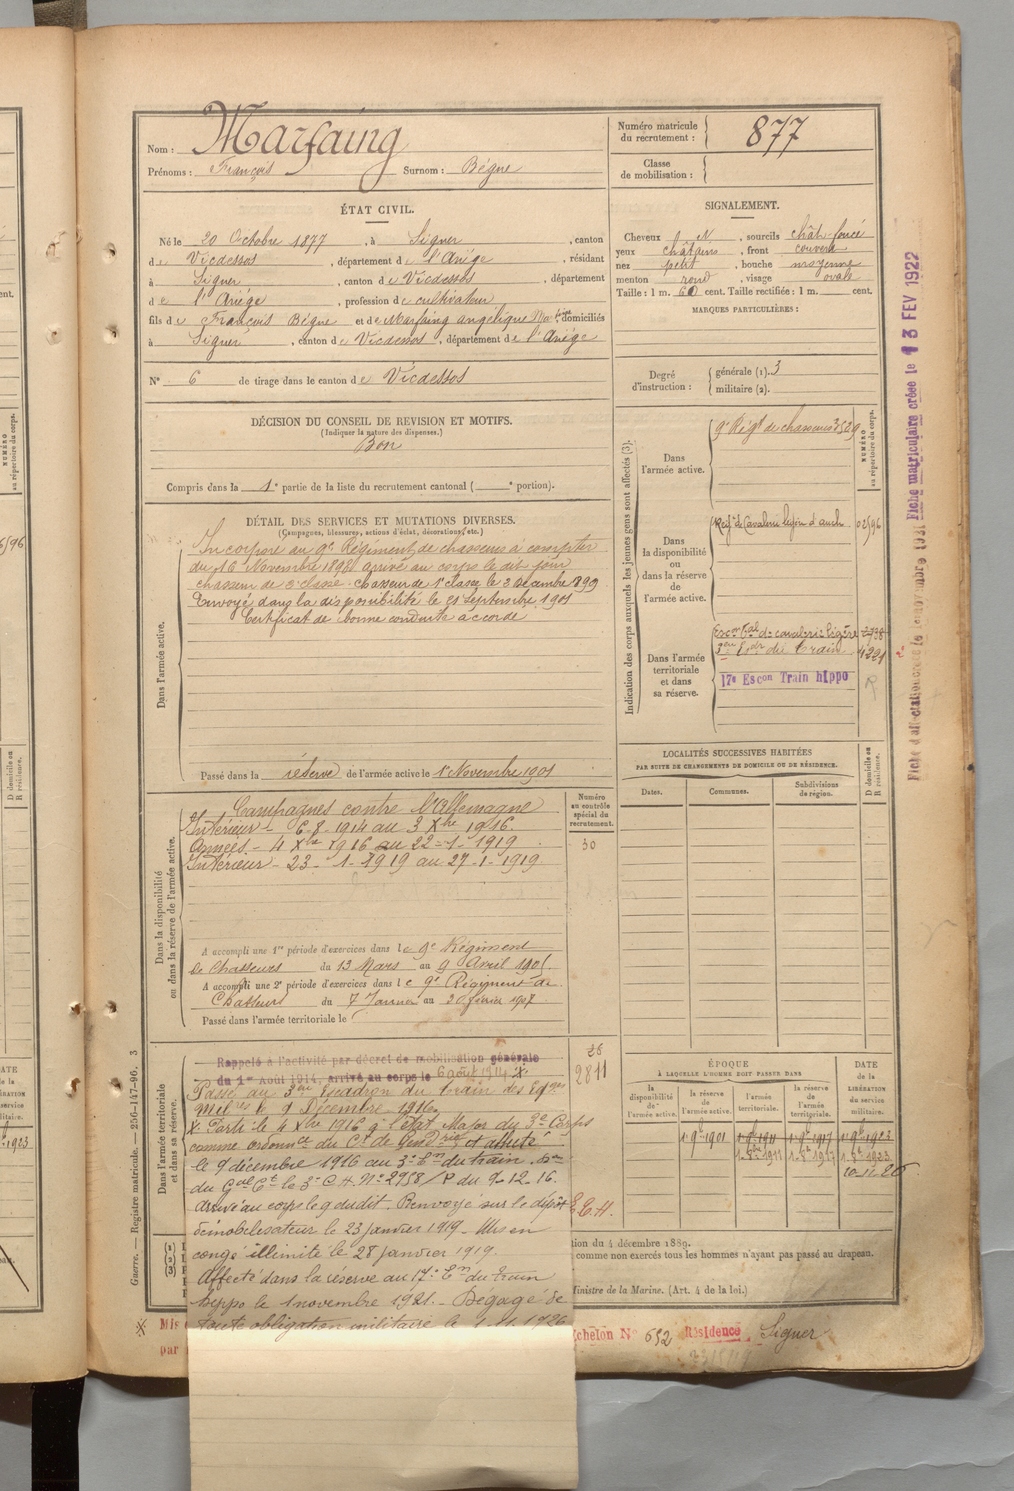 Nom : Marfaing
Prénoms : François Surnom : Bègue
Numéro matricule du recrutement : 877
Classe de mobilisation :
ÉTAT CIVIL.
Né le 20 Octobre 1877, à Siguer, canton
de Vicdessos, département de l'Ariège, résidant
à Siguer, canton de Vicdessos, département
de l'Ariège, profession de cultivateur
fils de François Bègue et de Marfaing angélique domiciliés
à Siguer, canton de Vicdessos, département de l'Ariège
N° 6 de tirage dans le canton de Vicdessos
SIGNALEMENT.
Cheveux N, sourcils chât-foncé
yeux châtains, front couvert
nez petit, bouche moyenne
menton rond, visage ovale
Taille : 1 m. 60 cent. Taille rectifiée : 1 m. cent.
MARQUES PARTICULIÈRES :
Degré d'instruction : générale (1). 3
militaire (2).
DÉCISION DU CONSEIL DE REVISION ET MOTIFS.
(Indiquer la nature des dispenses.)
Bon
Compris dans la 1e partie de la liste du recrutement cantonal ( e portion).
DÉTAIL DES SERVICES ET MUTATIONS DIVERSES.
(Campagnes, blessures, actions d'éclat, décorations, etc.)
Dans l'armée active.
Incorporé au 9e Régiment de chasseurs à compter
du 16 Novembre 1898 arrivé au corps le dit jour
chasseur de 2e classe. Chasseur de 1e classe le 3 décembre 1899
Envoyé dans la disponibilité le 21 septembre 1901
Certificat de bonne conduite accordé
Passé dans la réserve de l'armée active le 1 Novembre 1901
Indication des corps auxquels les jeunes gens sont affectés (3).
NUMÉRO au répertoire du corps.
Dans l'armée active.
9e Régt de chasseurs 3529
Dans la disponibilité ou dans la réserve de l'armée active.
Regt de Cavalerie légère d'auch 02596
Dans l'armée territoriale et dans sa réserve.
Escon tal de cavalerie légère 2738
3eme Escdon du Train 4221
17e Escon Train hippo R
LOCALITÉS SUCCESSIVES HABITÉES
PAR SUITE DE CHANGEMENTS DE DOMICILE OU DE RÉSIDENCE.
Dates. Communes. Subdivisions de région. D domicile ou R résidence.
Dans la disponibilité ou dans la réserve de l'armée active.
Numéro au contrôle spécial du recrutement.
30
Campagnes contre l'Allemagne
Intérieur - 6-8-1914 au 3 Xbre 1916.
Armées - 4 Xbre 1916 au 22-1-1919
Intérieur - 23-1-1919 au 27-1-1919
A accompli une 1re période d'exercices dans le 9e Régiment
de Chasseurs du 13 Mars au 9 Avril 1905.
A accompli une 2e période d'exercices dans le 9e Régiment de
Chasseurs du 7 Janvier au 3 février 1907
Passé dans l'armée territoriale le
Dans l'armée territoriale et dans sa réserve.
2811
Rappelé à l'activité par décret de mobilisation générale
du 1er Août 1914, arrivé au corps le 6 août 1914 X.
Passé au 3eme Escadron du train des Eqges
Milres le 9 Décembre 1916.
X. Parti le 4 Xbre 1916 à l'état Major du 3e Corps
comme ordonnce du Ct de Gendrie et affecté
le 9 décembre 1916 au 3e Em du train.
du Gal Ct le 3e C.A. N° 2958/P du 9-12-16.
Arrivé au corps le 9 du dit. Renvoyé sur le dépôt E.C.H.
démobilisateur le 23 janvier 1919 - Mis en
congé illimité le 28 janvier 1919.
Affecté dans la réserve au 17e Em du train
hippo le 1 novembre 1921. - Dégagé de
toute obligation militaire le 1-11-1926
ÉPOQUE
À LAQUELLE L'HOMME DOIT PASSER DANS
la disponibilité de l'armée active. la réserve de l'armée active. l'armée territoriale. la réserve de l'armée territoriale. DATE de la LIBÉRATION du service militaire.
1-9bre 1901 1-9bre 1911 1-9bre 1917 1-9bre 1923
1-9bre 1911 1-9bre 1917 1-9bre 1923
10-11-26
tion du 4 décembre 1889.
comme non exercés tous les hommes n'ayant pas passé au drapeau.
Ministre de la Marine. (Art. 4 de la loi.)
Mis
par
Echelon N° 652 Résidence Siguer
Guerre. — Registre matricule. — 256-147-96. 3
Fiche matriculaire créée le 13 FEV 1922
Fiche d'affectation créée le 1 novembre 1921